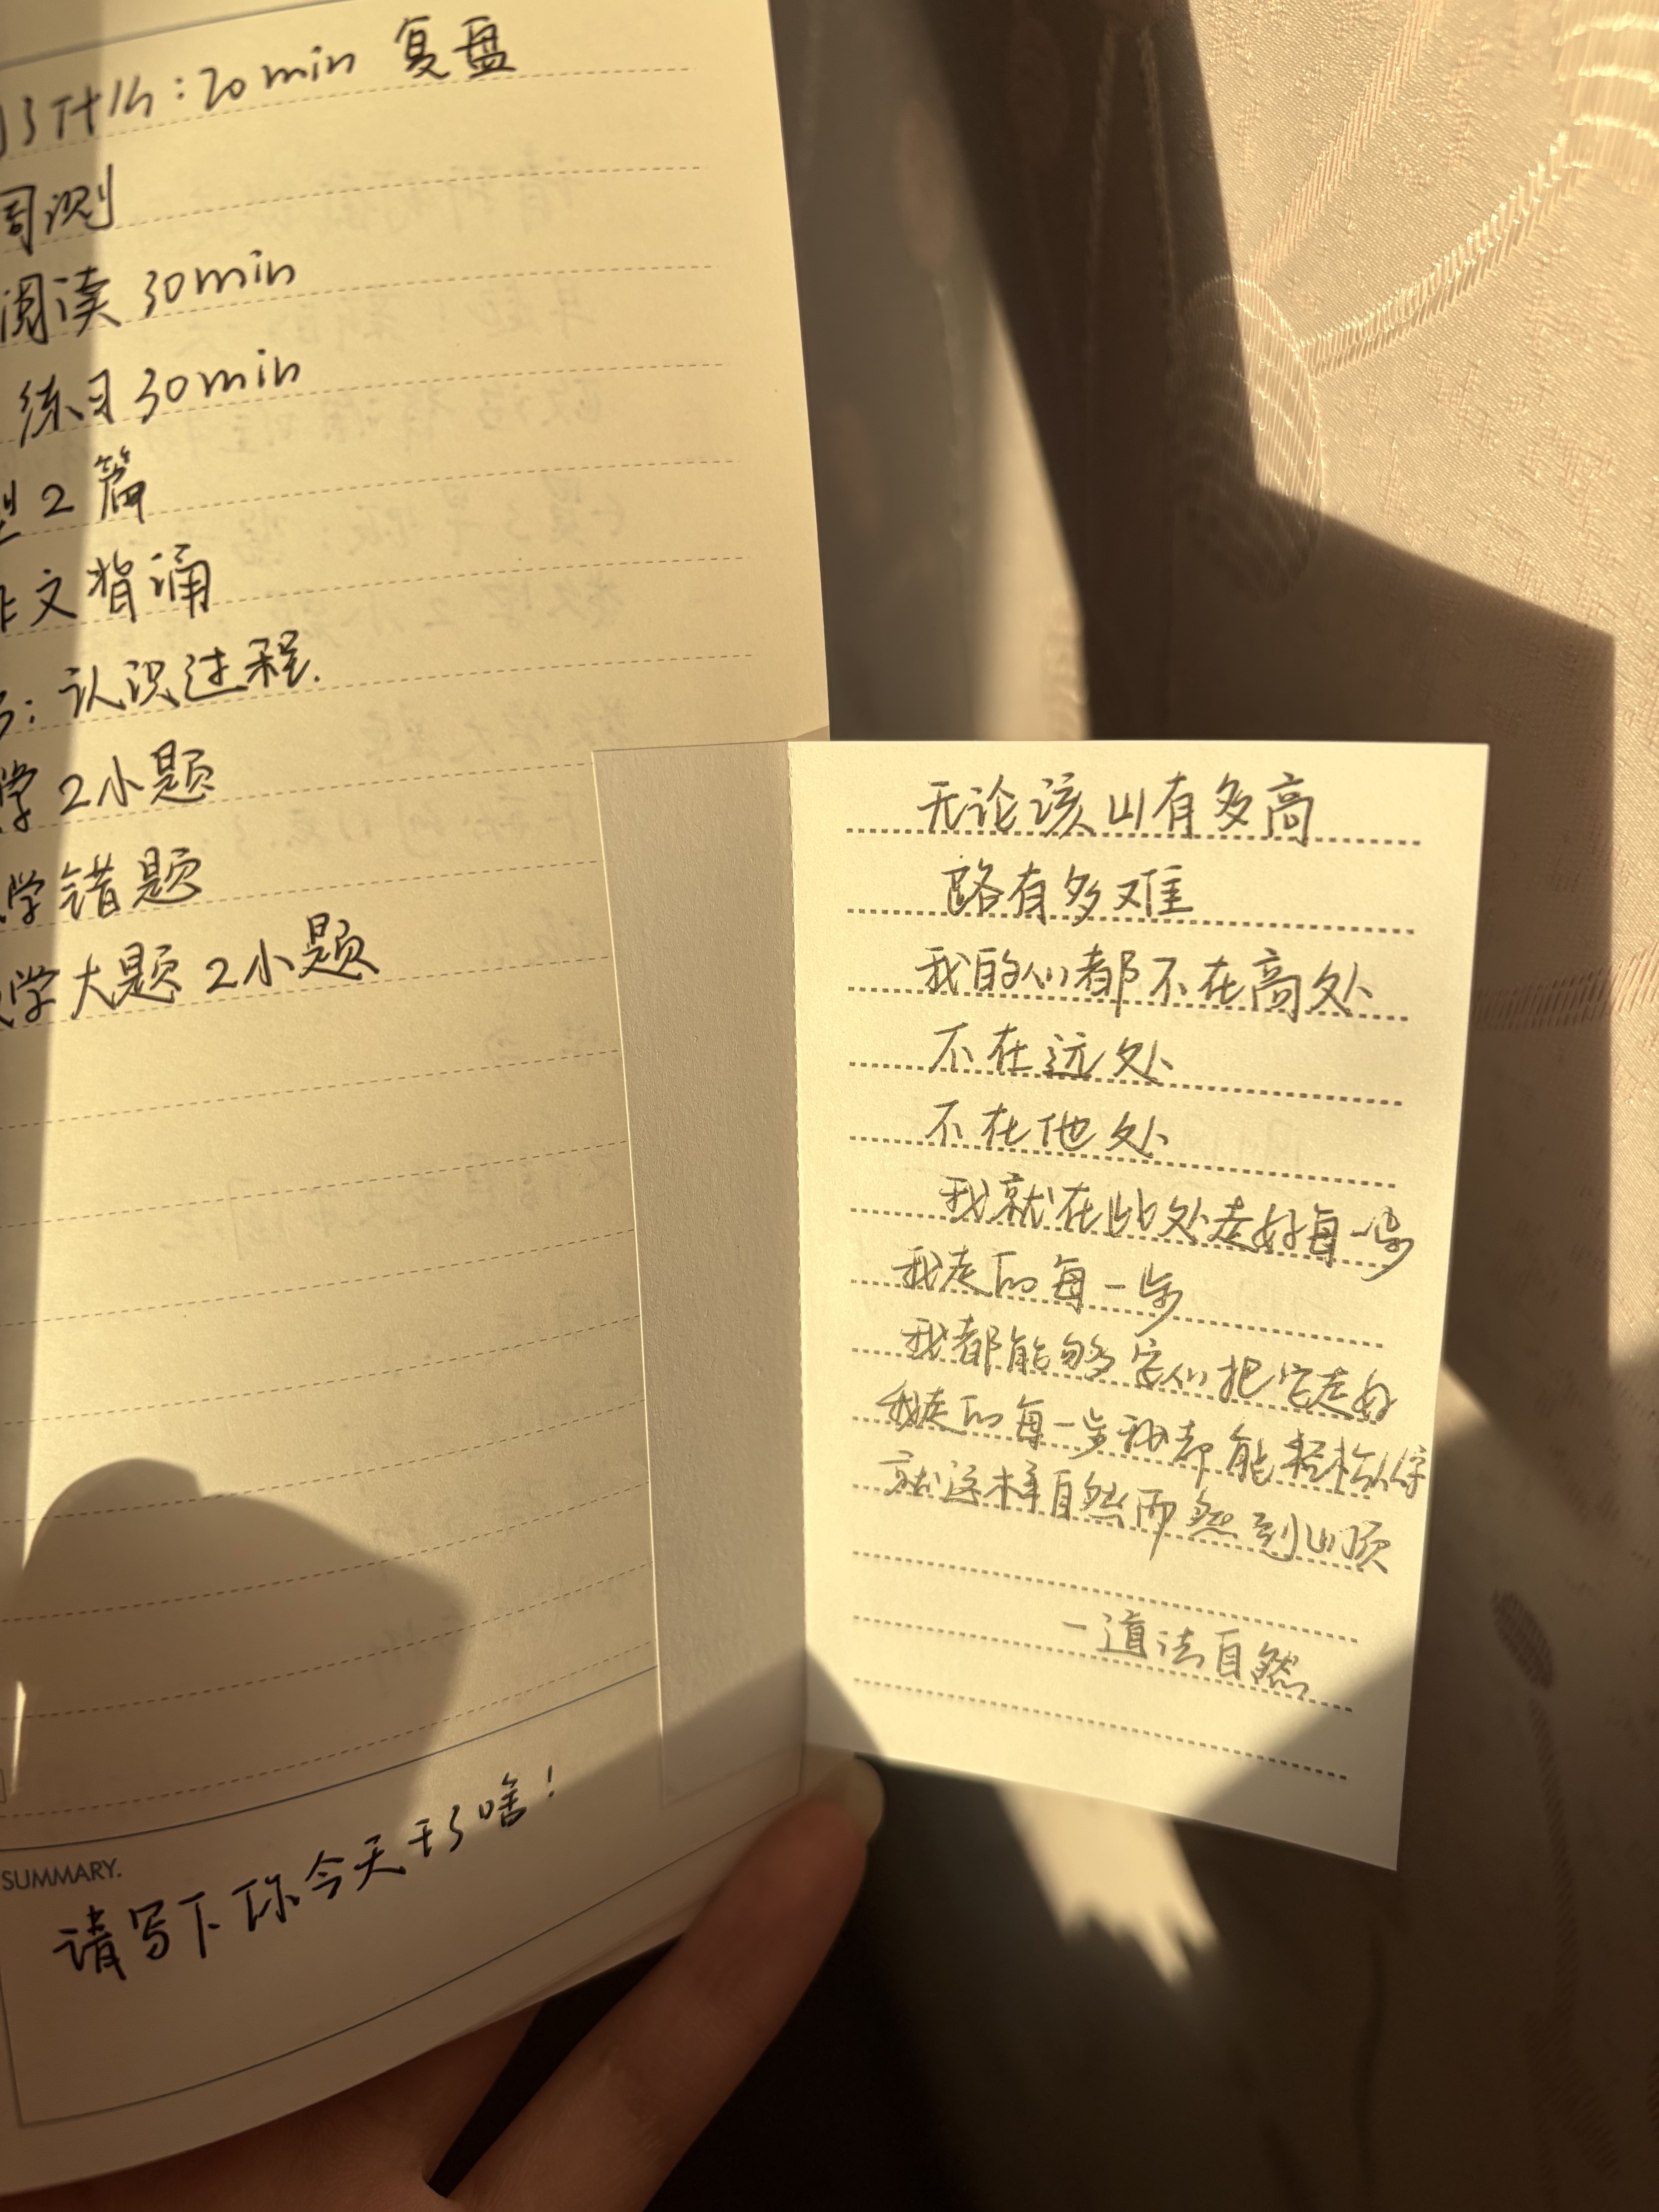 了什么:20min 复盘
周测
阅读 30min
练习30min
型2篇
作文背诵
:认识过程.
学2小题
学错题
学大题 2小题
SUMMARY.
请写下你今天干了啥!
无论该山有多高
路有多难
我的心都不在高处
不在远处
不在他处
我就在此处走好每一步
我走的每一步
我都能够安心把它走好
我走的每一步我都能轻松
就这样自然而然到山顶
一道法自然